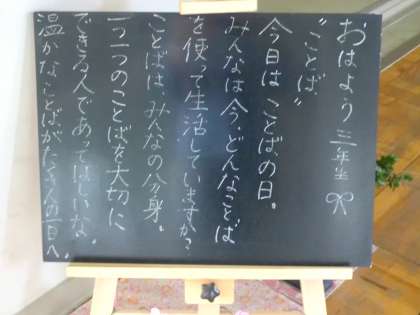 おはよう三年生
"ことば"
今日はことばの日。
みんなは今、どんなことば
を使って生活していますか？
ことばは、みんなの分身。
一つ一つのことばを大切に
できる人であってほしいな。
温かなことばがたくさんの一日へ。